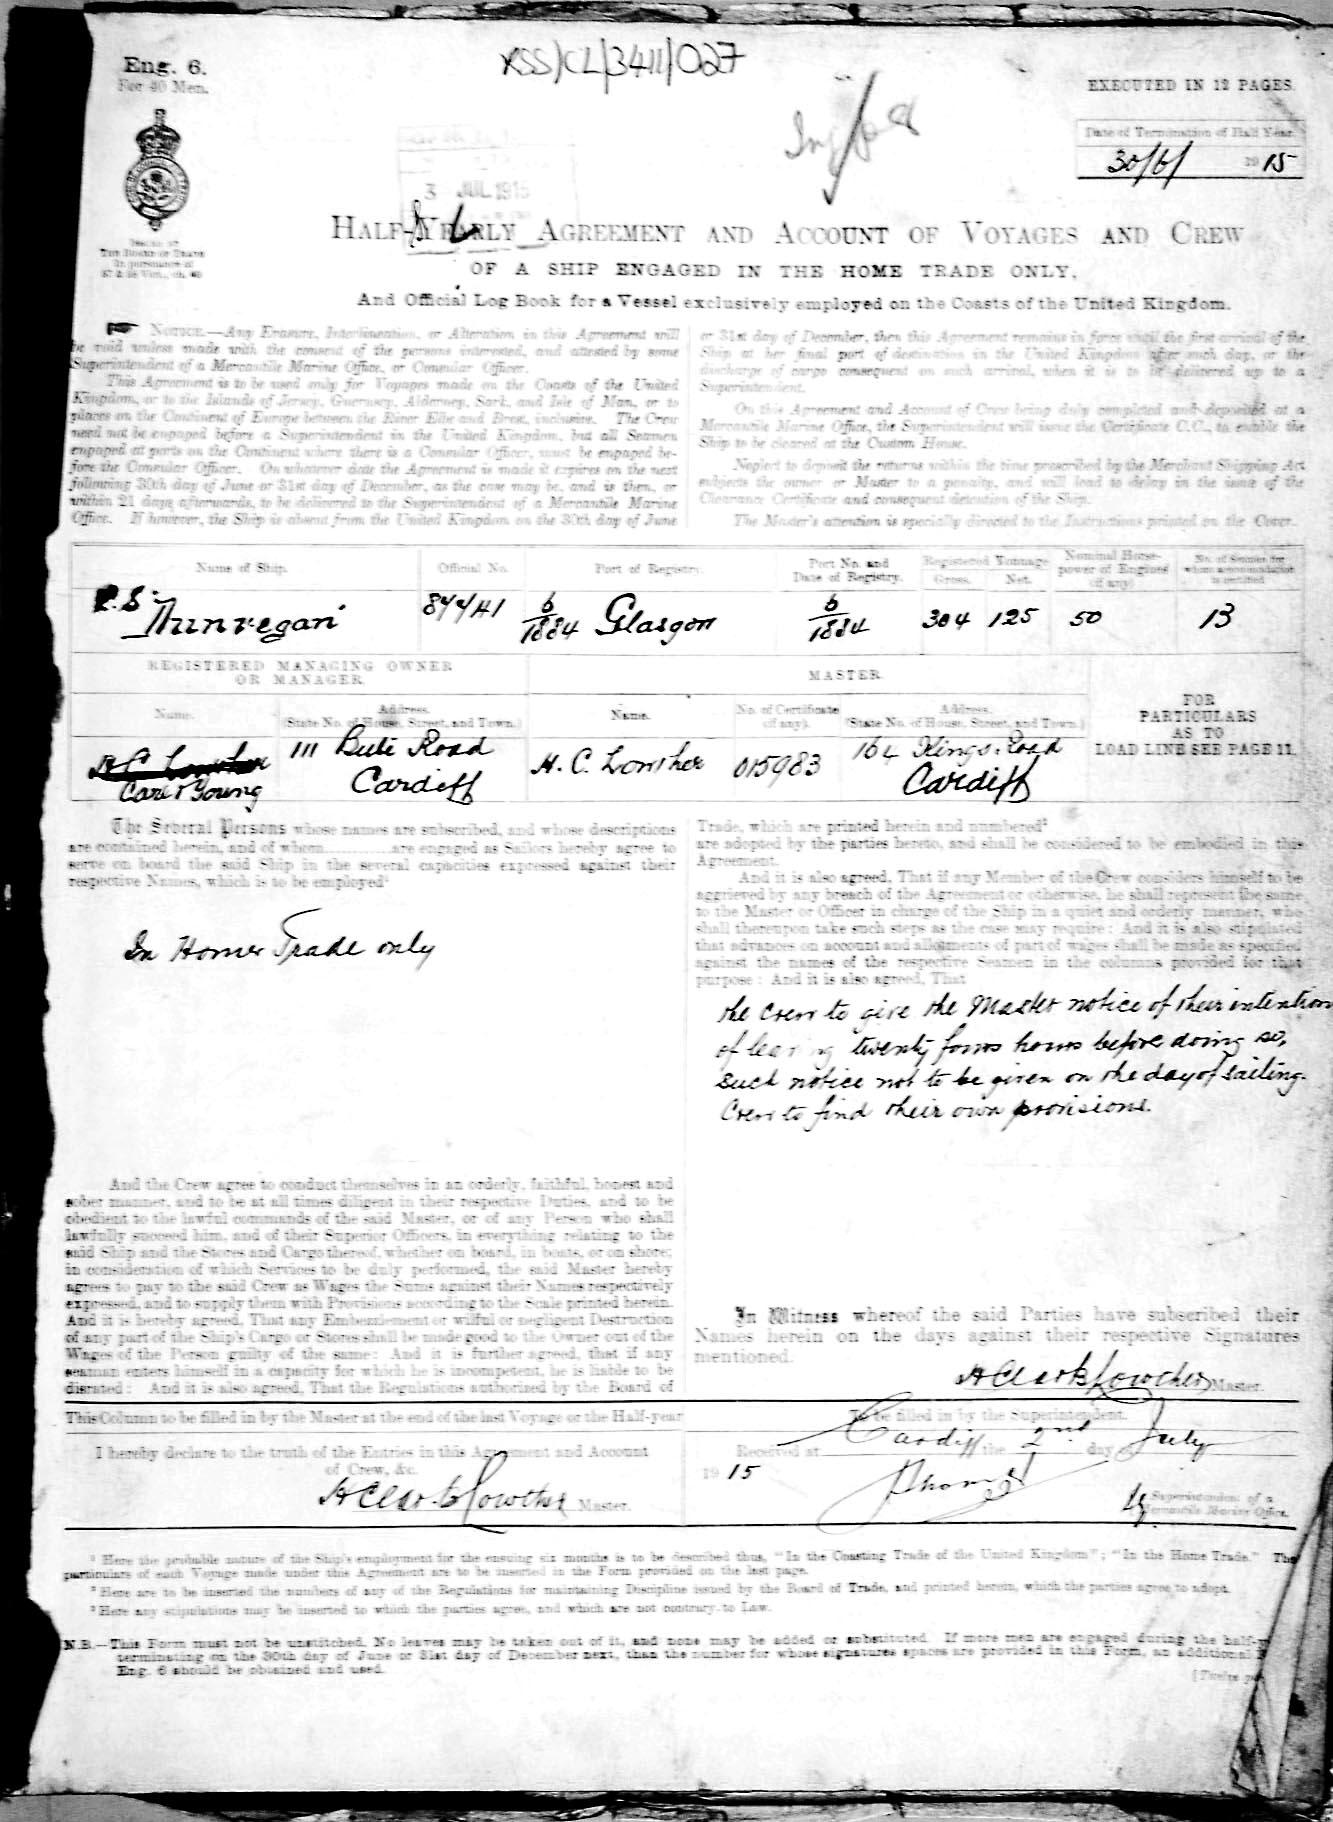 RSS/CL/3411/027
Eng. 6.
For 40 Men.
EXECUTED IN 12 PAGES.
Date of Termination of Half Year.
30/6/ 1915
3 JUL 1915
ISSUED BY
THE BOARD OF TRADE
In pursuance of
HALF-YEARLY AGREEMENT AND ACCOUNT OF VOYAGES AND CREW
OF A SHIP ENGAGED IN THE HOME TRADE ONLY,
And Official Log Book for a Vessel exclusively employed on the Coasts of the United Kingdom.
NOTICE.—Any Erasure, Interlineation, or Alteration in this Agreement will
be void unless made with the consent of the persons interested, and attested by some
Superintendent of a Mercantile Marine Office, or Consular Officer.
This Agreement is to be used only for Voyages made on the Coasts of the United
Kingdom, or to the Islands of Jersey, Guernsey, Alderney, Sark, and Isle of Man, or to
places on the Continent of Europe between the River Elbe and Brest, inclusive. The Crew
need not be engaged before a Superintendent in the United Kingdom, but all Seamen
engaged at ports on the Continent where there is a Consular Officer, must be engaged be-
fore the Consular Officer. On whatever date the Agreement is made it expires on the next
following 30th day of June or 31st day of December, as the case may be, and is then, or
within 21 days afterwards, to be delivered to the Superintendent of a Mercantile Marine
Office. If however, the Ship is absent from the United Kingdom on the 30th day of June
or 31st day of December, then this Agreement remains in force until the first arrival of the
Ship at her final port of destination in the United Kingdom after such day, or the
discharge of cargo consequent on such arrival, when it is to be delivered up to a
Superintendent.
On this Agreement and Account of Crew being duly completed and deposited at a
Mercantile Marine Office, the Superintendent will issue the Certificate C.C., to enable the
Ship to be cleared at the Custom House.
Neglect to deposit the returns within the time prescribed by the Merchant Shipping Act
subjects the owner or Master to a penalty, and will lead to delay in the issue of the
Clearance Certificate and consequent detention of the Ship.
The Master's attention is specially directed to the Instructions printed on the Cover.
Name of Ship. Official No. Port of Registry. Port No. and Date of Registry. Registered Tonnage Gross. Net. Nominal Horse-power of Engines (if any) No. of Seamen for whom accommodation is certified
Dunvegan 87741 6/1884 Glasgow 6/1884 304 125 50 13
REGISTERED MANAGING OWNER
OR MANAGER.
MASTER.
Name. Address. (State No. of House, Street, and Town.) Name. No. of Certificate (if any). Address. (State No. of House, Street, and Town.)
FOR
PARTICULARS
AS TO
LOAD LINE SEE PAGE 11.
111 Bute Road H. C. Lowther 015983 164 Kings Road
Young Cardiff Cardiff
The Several Persons whose names are subscribed, and whose descriptions
are contained herein, and of whom............are engaged as Sailors hereby agree to
serve on board the said Ship in the several capacities expressed against their
respective Names, which is to be employed¹
In Home Trade only
And the Crew agree to conduct themselves in an orderly, faithful, honest and
sober manner, and to be at all times diligent in their respective Duties, and to be
obedient to the lawful commands of the said Master, or of any Person who shall
lawfully succeed him, and of their Superior Officers, in everything relating to the
said Ship and the Stores and Cargo thereof, whether on board, in boats, or on shore;
in consideration of which Services to be duly performed, the said Master hereby
agrees to pay to the said Crew as Wages the Sums against their Names respectively
expressed, and to supply them with Provisions according to the Scale printed herein.
And it is hereby agreed, That any Embezzlement or wilful or negligent Destruction
of any part of the Ship's Cargo or Stores shall be made good to the Owner out of the
Wages of the Person guilty of the same: And it is further agreed, that if any
seaman enters himself in a capacity for which he is incompetent, he is liable to be
disrated: And it is also agreed, That the Regulations authorized by the Board of
Trade, which are printed herein and numbered²
are adopted by the parties hereto, and shall be considered to be embodied in this
Agreement.
And it is also agreed, That if any Member of the Crew considers himself to be
aggrieved by any breach of the Agreement or otherwise, he shall represent the same
to the Master or Officer in charge of the Ship in a quiet and orderly manner, who
shall thereupon take such steps as the case may require: And it is also stipulated
that advances on account and allotments of part of wages shall be made as specified
against the names of the respective Seamen in the columns provided for that
purpose: And it is also agreed, That
the Crew to give the Master notice of their intention
of leaving twenty four hours before doing so,
such notice not to be given on the day of sailing.
Crew to find their own provisions.
In Witness whereof the said Parties have subscribed their
Names herein on the days against their respective Signatures
mentioned.
H Clark Lowther Master.
This Column to be filled in by the Master at the end of the last Voyage or the Half-year
I hereby declare to the truth of the Entries in this Agreement and Account
of Crew, &c.
H Clark Lowther Master.
To be filled in by the Superintendent.
Received at Cardiff the 2nd day of July
1915
Superintendent of a
Mercantile Marine Office.
¹ Here the probable nature of the Ship's employment for the ensuing six months is to be described thus, "In the Coasting Trade of the United Kingdom"; "In the Home Trade." The
particulars of each Voyage made under this Agreement are to be inserted in the Form provided on the last page.
² Here are to be inserted the numbers of any of the Regulations for maintaining Discipline issued by the Board of Trade, and printed herein, which the parties agree to adopt.
³ Here any stipulations may be inserted to which the parties agree, and which are not contrary to Law.
N.B.—This Form must not be unstitched. No leaves may be taken out of it, and none may be added or substituted. If more men are engaged during the half-y
terminating on the 30th day of June or 31st day of December next, than the number for whose signatures spaces are provided in this Form, an additional F
Eng. 6 should be obtained and used.